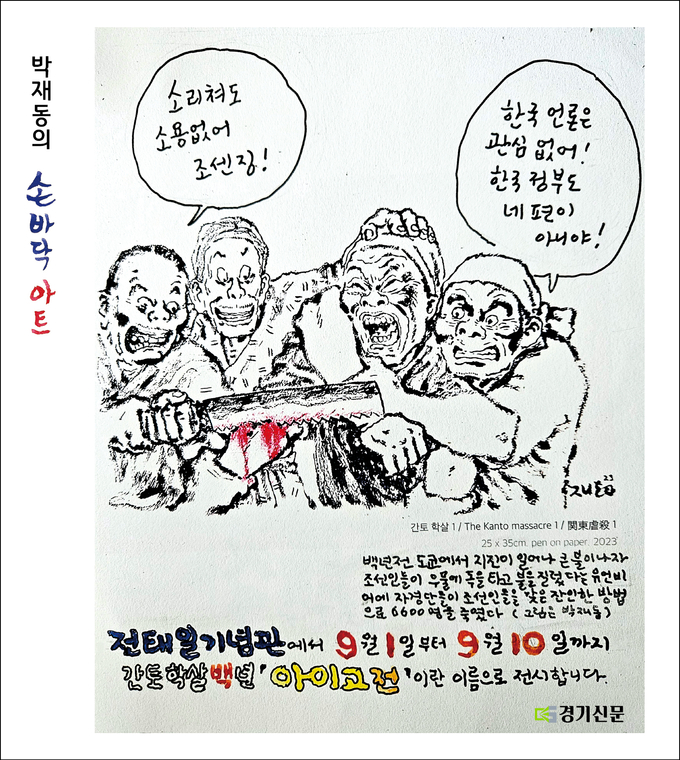 박재동의 손바닥 아트
소리쳐도
소용없어
조센징!
한국 언론은
관심 없어!
한국 정부도
네 편이
아니야!
재동 23
간토 학살 1 / The Kanto massacre 1 / 関東虐殺 1
25 x 35cm. pen on paper. 2023
백년전 도쿄에서 지진이 일어나 큰불이 나자
조선인들이 우물에 독을 타고 불을 질렀다는 유언비
어에 자경단들이 조선인들을 갖은 잔인한 방법
으로 6600 명을 죽였다 ( 그림은 박재동 )
전태일기념관에서 9월 1일부터 9월 10일까지
간토학살백년 '아이고전' 이란 이름으로 전시합니다.
경기신문